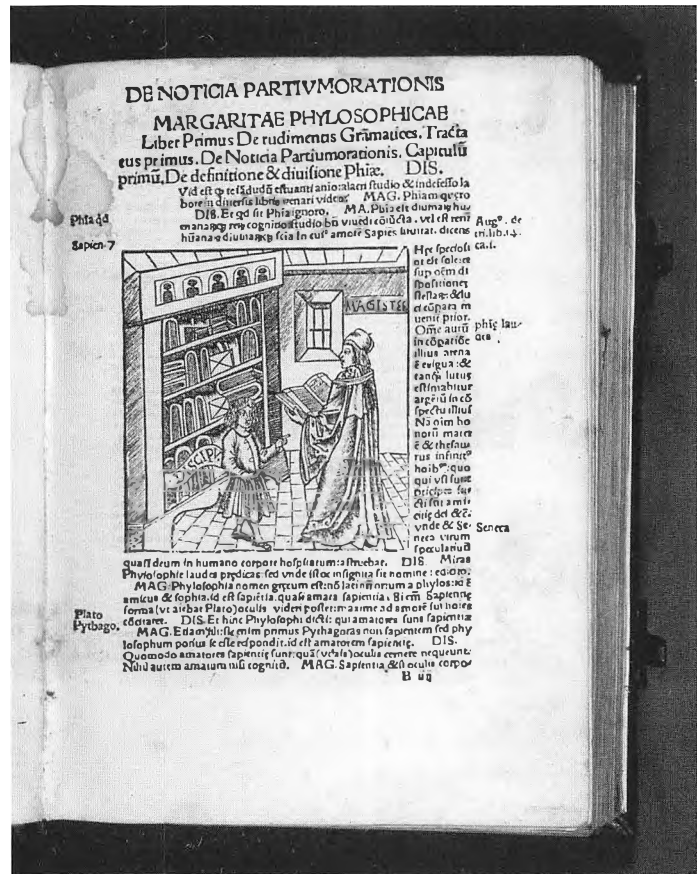 DE NOTICIA PARTIVMORATIONIS
MARGARITAE PHYLOSOPHICAE
Liber Primus De rudimentis Grāmatices. Tracta
tus primus. De Noticia Partiumorationis. Capitulū
primū. De definitione & diuisione Phiæ. DIS.
Vid est ꝙ estuanti animo: alam studio & indefesso la
bore in diuersis libris venari videor MAG. Phiam quęro
DIS. Et qd sit Phia ignoro. MA. Phia est diuinaꝝ hu
manaꝝꝙ reꝝ cognitio studio bñ viuēdi cōiūcta. vel est
hūanaꝝ diuinaꝝꝙ scia in amorē Sapiēs dicens
Phia qd
Sapien·7
Augᵒ. de
tri. lib. 14.
ca. 1.
Hęc speciosi
or est sole: et
sup oēm di
spositionem
stellaꝝ: & lu
ci cōpara in
uenit prior.
Omē aurū
in cōpatiōe
illius arena
ē exigua: &
tanꝙ lutus
estimabitur
argētū in cō
spectu illius
Nā oim ho
norū mater
ē & thesau
rus infinitᵒ
hoibᵒ: quo
qui vsi sunt
pticipes fa
cti sūt ami
citię dei &c̄.
vnde & Se
neca virum
speculatiuū
phię lau
Seneca
MAGISTER
quasi deum in humano corpore hospitatum: astruebat. DIS. Miras
Phylosophie laudes prędicas: sed vnde istoc insignita sit nomine: edoro.
MAG. Phylosophia nomen gręcum est: nō latinū nomum a phylos: id ē
amicus & sophia. id est sapiētia. quasi amara sapientia. Si eñ Sapientię
forma (vt aiebat Plato) oculis videri posset: maxime ad amorē sui hoies
cōcitaret. DIS. Et hinc Phylosophi dicti: qui amatores sunt sapientiæ
MAG. Etiam fili: sic enim primus Pythagoras non sapientem sed phy
losophum potius se esse respondit. id est amatorem sapientię. DIS.
Quomodo amatores sapientię sunt: quā (vt ais) oculis cernere nequeunt.
Nihil autem amatum nisi cognitū. MAG. Sapientia & si oculis corpo
Plato
Pythago.
B iiij